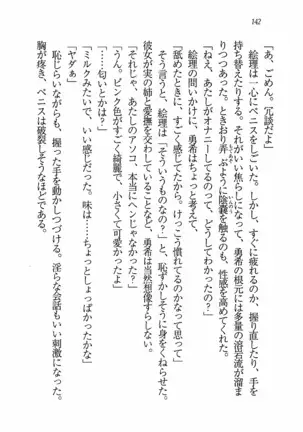 142
「あ、ごめん。冗談だよ」
絵理は一心にペニスをしごいた。しかし、すぐに疲れるのか、握り直したり、手を
持ち替えたりする。それがいい焦らしになって、勇希の根元には多量の溶岩流が溜ま
りつつあった。ときおり弄ぶように陰嚢を触るのも、性感を高めてくれた。
「ねえ、あたしがオナニーしてるのって、どうしてわかったの?」
恥ずかしそうに訊ねられ、勇希はちょっと考えて、
「舐めたときに、すごく感じてたから。けっこう慣れてるのかなって思って」
そう言うと、絵理は「そういうものなの?」と、恥ずかしそうに身をくねらせた。
彼女が実の姉と愛撫を交わしていることなど、勇希は当然想像すらしない。
「それじゃ、あたしのアソコ、本当にヘンじゃなかった?」
「うん。ピンク色がすごく綺麗で、小さくて可愛かったよ」
「……匂いとかは?」
「ミルクみたいで、いい感じだった。味は……ちょっとしょっぱかったかな」
「ヤダぁ」
恥じらいながらも、握った手を動かしつづける。淫らな会話もいい刺激になった。
胸が疼き、ペニスは破裂しそうなほどである。